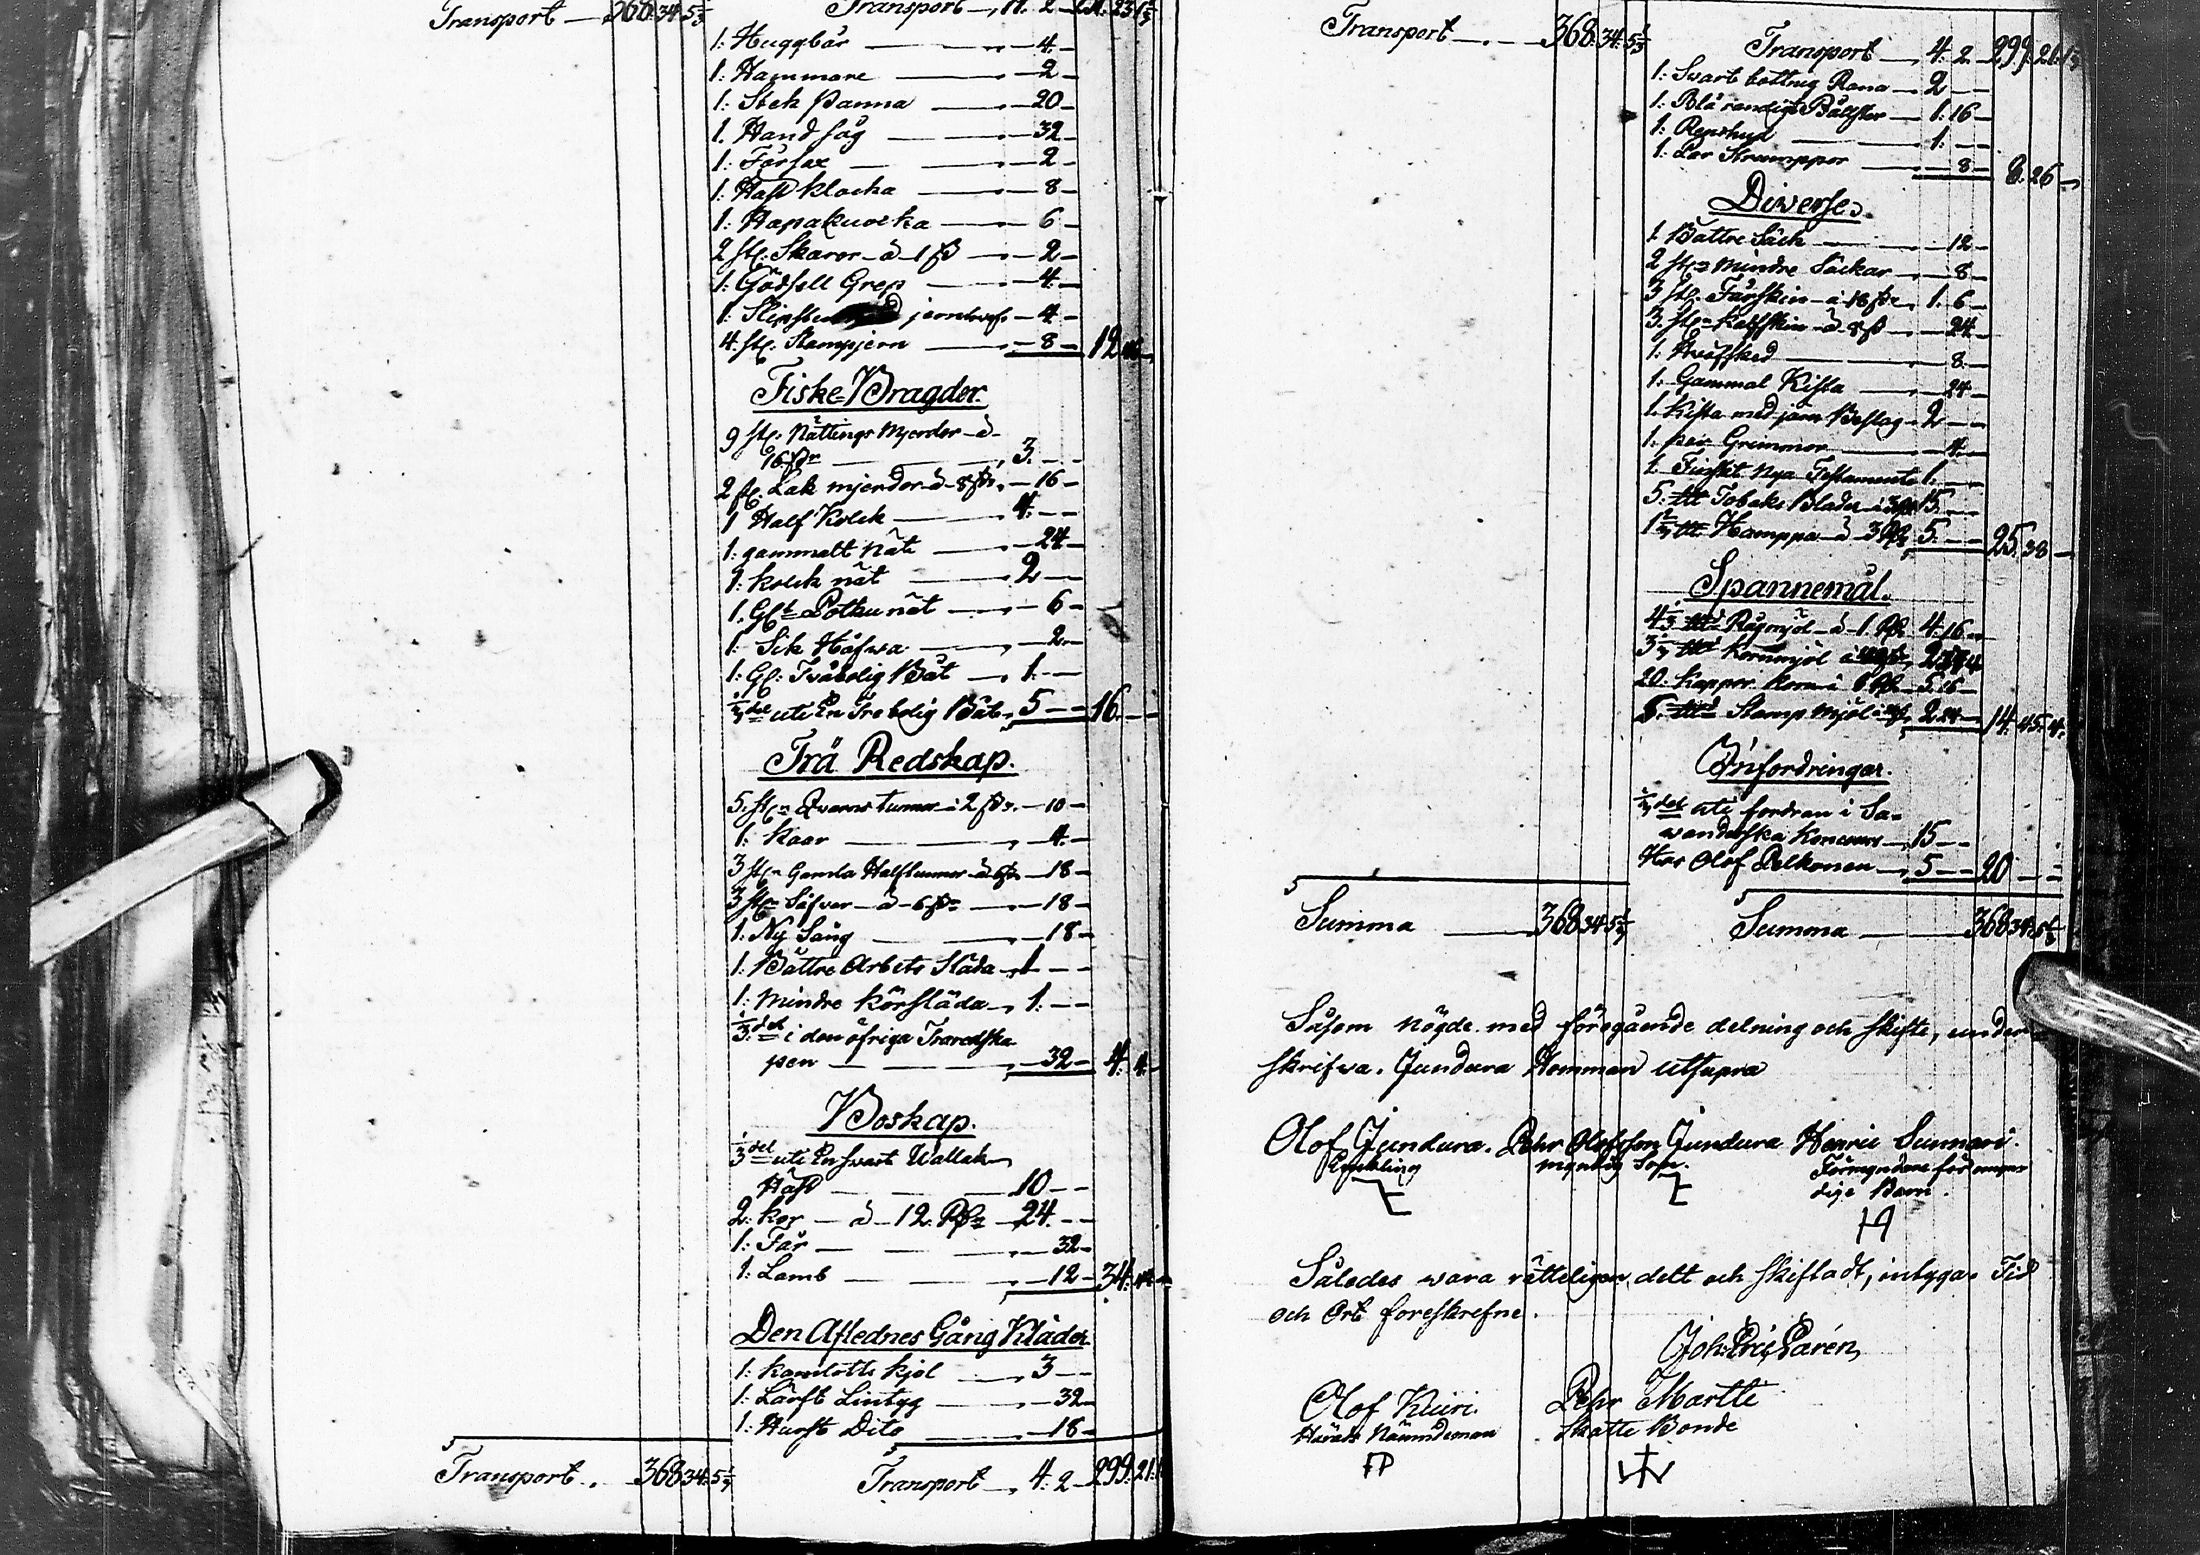 Transport 368 34 5 1/3
Transport 11. 2 231 1/3
1: Huggbår 4
1: Hammare 2
1: Stek Panna 20
1. Hand såg 32
1: Fårsax 2
1: Häst klocka 8
1: Hapakuocka 6
2 st. Skaror à 1 ß 2
1: Gödsell Grep 4
1: jerntwef 4
4. st. Stampjern 8 12
Fiske Bragder.
9 st. Nättings Mjerdor à
16 ßr 3
2 st. Lak mjerdor à 8 ßr 16
1 Half Kolck 4
1: gammalt Nät 24
1: kolck nät 2
1. Gl. Potku nät 6
1: Sik Håfwa 2
1: Gl. Tvåbolig Båt 1
1/3 del uti En Trebolig Båt 5 16
Trä Redskap.
5. st. Qvarns tunnor à 2 ßr 10
1: Kaar 4
3 st. Gamla Halftunnor à 6 ßr 18
3 st. Såfvar à 6 ßr 18
1. Ny Säng 18
1: Bättre Arbets Släda 1
1: Mindre körsläda 1
1/3 del i den öfriga Träredska
pen 32 4: 4
Boskap.
1/3 del uti En svart Wallack
Häst 10
2: kor à 12 Rßr 24
1: Får 32
1: Lamb 12 34:
Den Aflednes Gång Kläder
1: kamlotts kjol 3
1: Lärft Lintyg 32
1: Hurft Dito 18
Transport 368 34 5 1/3
Transport 4: 2 299: 21:
Transport 368: 34: 5 1/3
Transport 4: 2 299: 21: 1 1/3
1: Svart bottnig Rana 2
1: Blå randigt Bålster 1: 16
1: Renshud 1:
1: Par Strumppor 8 8: 26
Diverse.
1 Bättre Säck 12
2 st. mindre Säckar 8
3 st. Fårskin à 18 ßr 1: 6
3. st. Kalfskin à 8 ß 24
1: Präfsked 8
1: Gammal Kista 24
1. Kista med järn Beslag 2
1: par Grimmor 4
1. Finskt Nya Testamente 1:
5: ttt Tobaks Blader à 3 15
Hamppa à 3 5 25. 38
Spannemål.
4 1/3 Rågmjöl à 1 4: 16
3 Kornmjöl à
20: Kappor Korn 5 16
Stamp Mjöl 2 24 14: 45: 4
Infordringar.
1/3 del uti fordran i Sa-
wanderska Koncurs 15
Hos Olof Pelkonen 5 20
Summa 368 34 5 1/3
Summa 368 34 5 1/3
Såsom nögde med föregående delning och skifte, under
skrifwa. Jundura Homman utsupra
Olof Jundura. Pehr Olofsson Jundura Henric Sunnari.
Enckling myndig Son. Förmyndare för omyn
dige Barn.
Således wara rätteligen delt och skiftadt, intygas Tid
och Ort föreskrefne.
Joh: Eric Parén
Olof Kuiri. Pehr Martti
Härads Nämndeman Skatte Bonde